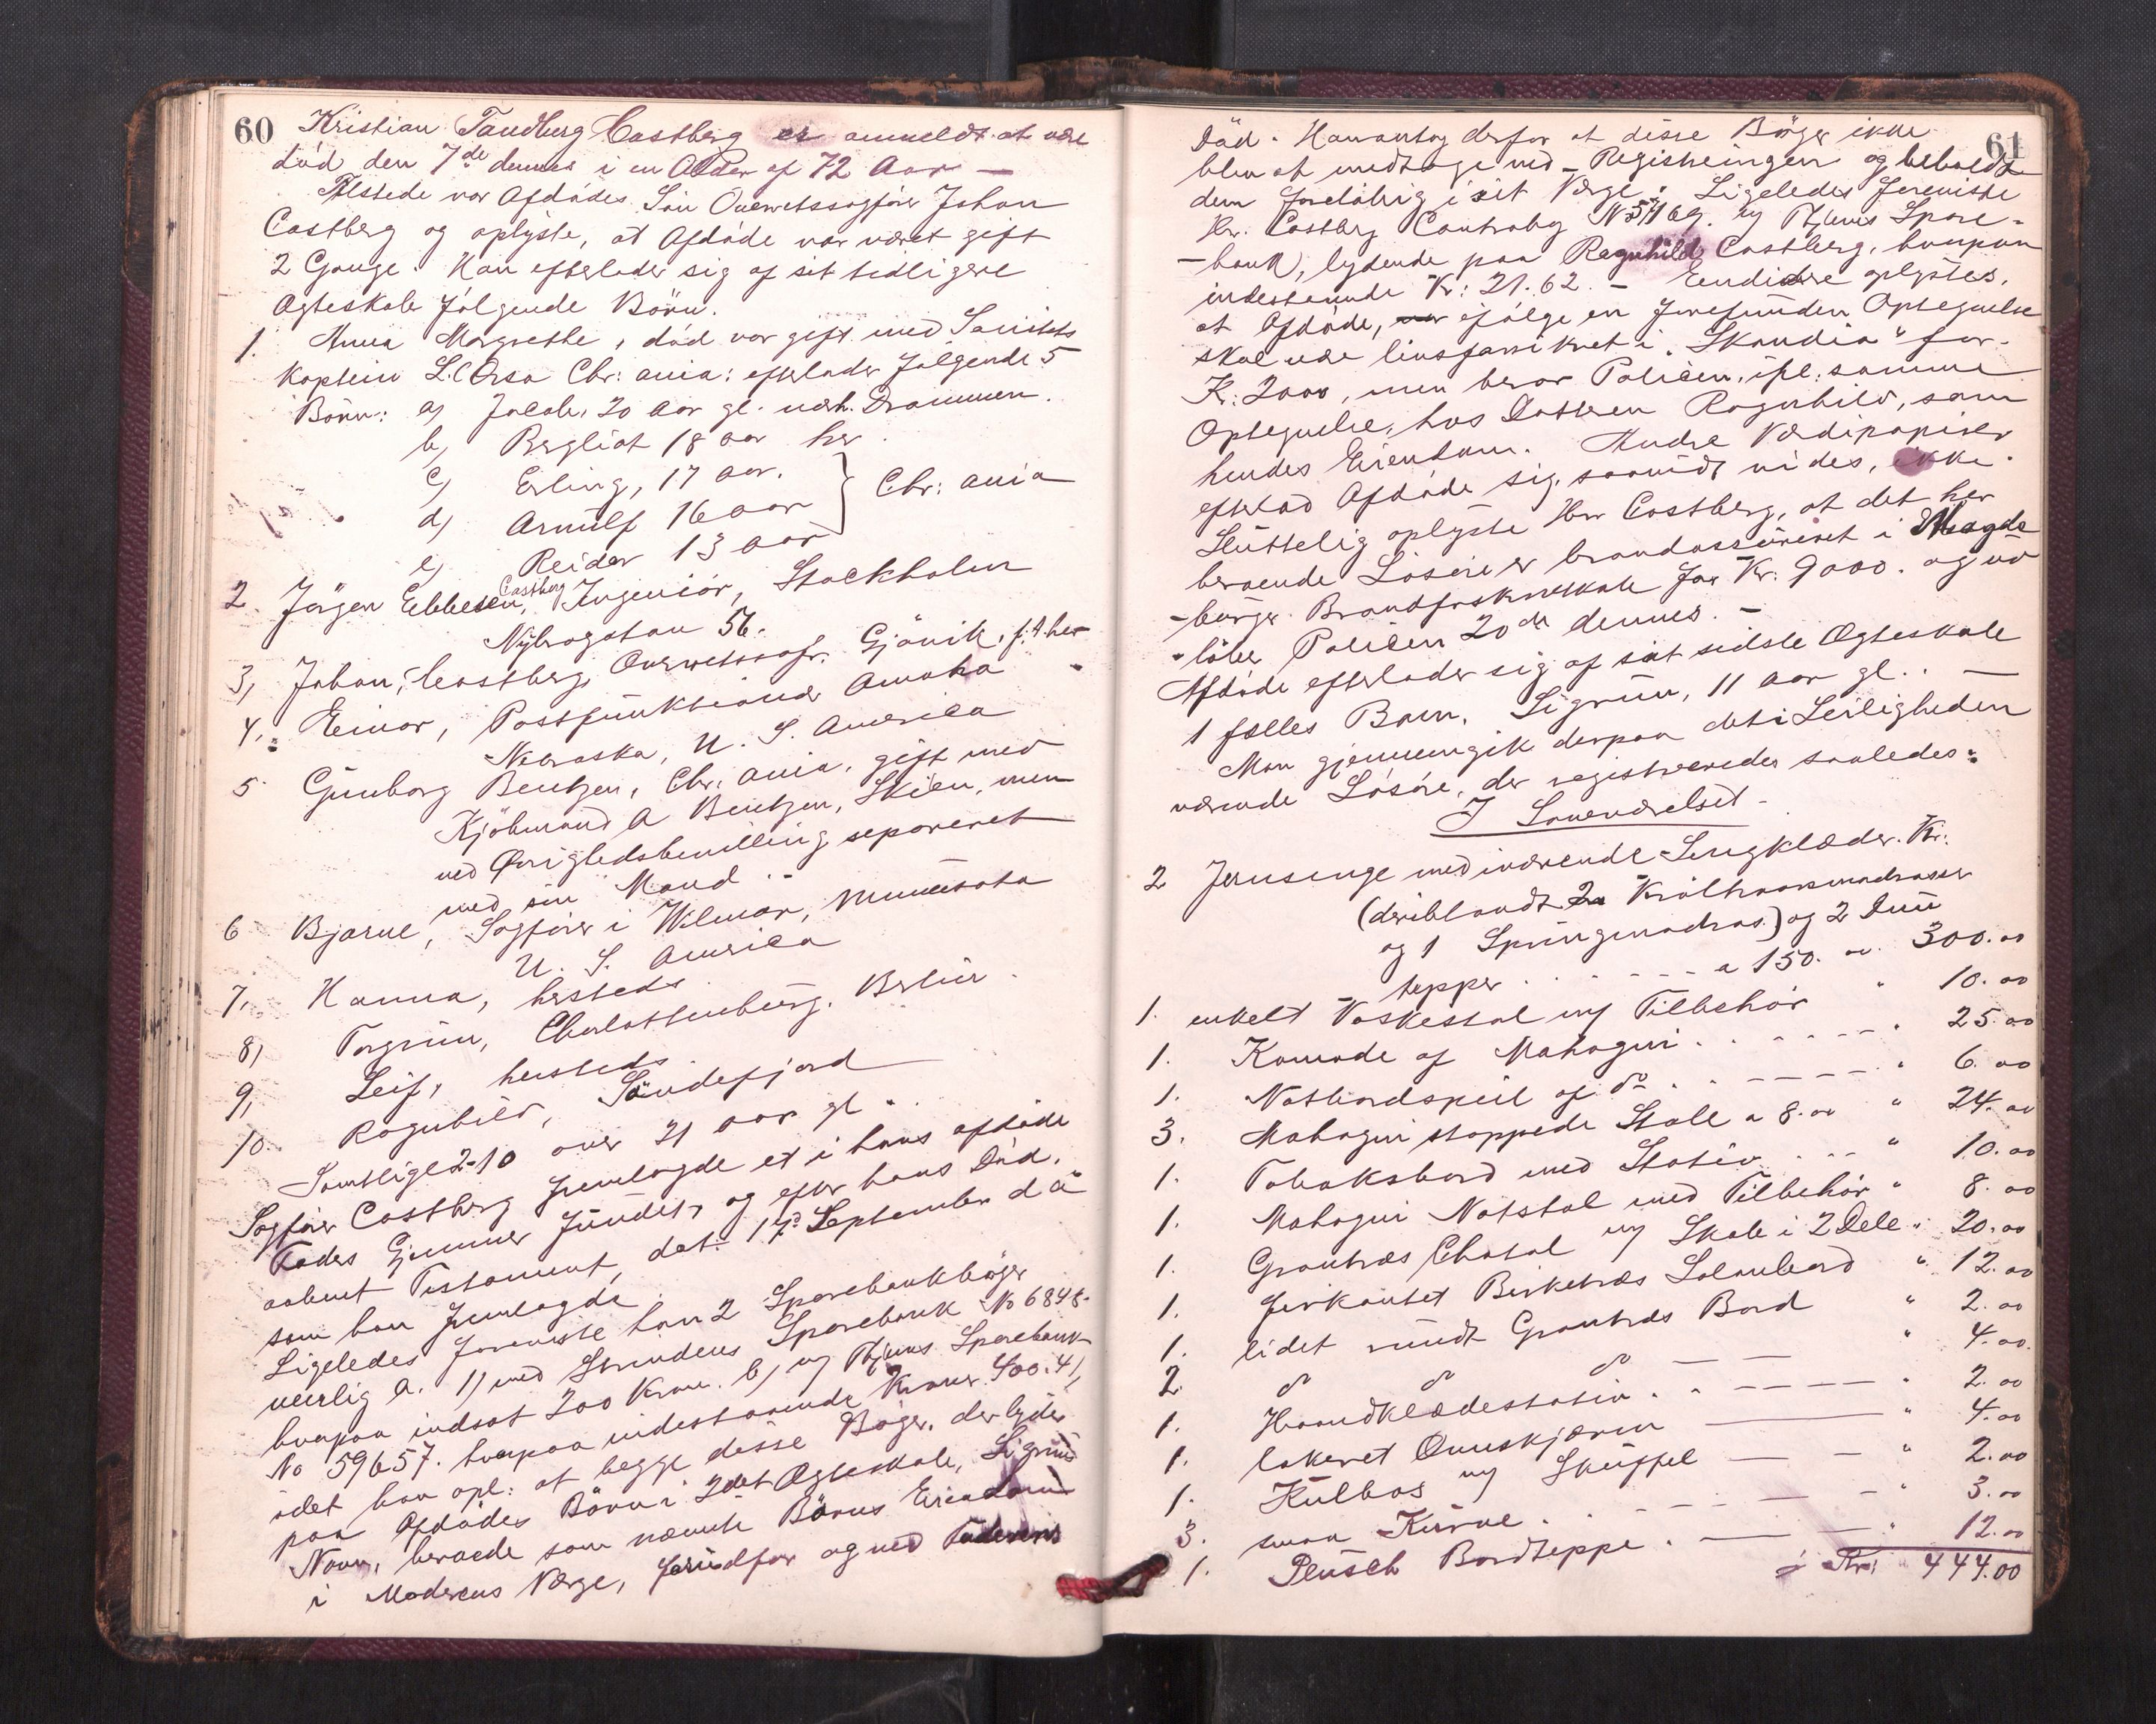 60
Kristian Tandberg Castberg er anmeldt at være
död den 7de dennes i en Alder af 72 Aar —
Tilstede var Afdödes Sön Overretssagförer Johan
Castberg og oplyste, at Afdöde var været gift
2 Gange. Han efterlader sig af sit tidligere
Ægteskab fölgende Börn.
1. Anna Margrethe, död var gift med Sanitets
Kaptein L. Orsa Chr: ania: efterlader fölgende 5
Börn: a) Jacob, 20 Aar gl. Drammen.
b) Bergliot 18 aar her.
c) Erling, 17 aar.
d) Arnulf 16 aar } Chr: ania
e) Reidar 13 aar
2. Jörgen Ebbesen Castberg, Ingeniör, Stockholm
Nybrogatan 56.
3, Johan, Castberg, Overretssagf. Gjövik, f. t. her
4. Einar, Postfunktionær Amaha
Nebraska, U. S. America
5 Gunborg Bentzen, Chr. ania, gift med
Kjöbmand A Bentzen, Skien, men
ved Övrighedsbevilling separeret
med sin Mand.
6 Bjarne, Sagförer i Wilmar, Minnesota
U. S. America
7, Hanna, hersteds
8, Torgrim, Charlottenburg. Berlin.
9, Leif, hersteds.
10. Ragnhild, Sandefjord
Samtlige 2-10 over 21 aar gl.
Sagförer Castberg fremlagde et i hans afdöde
Faders Gjemmer fundet, og efter hans Död.
aabent Testament, dat. 17de September d. å
som han fremlagde.
Ligeledes foreviste han 2 Sparebankböger
nemlig a. 1) med Strindens Sparebank No 6848.
hvorpaa indsat 200 Kron. b) Sparebank
No 59657. hvorpaa indestaaende Kroner 400.41,
idet han opl: at begge disse Böger, der lyder
paa Afdödes Börn i 2det Ægteskab, Sigruns
Navn, beroede som nævnte Barns Eiendom
i Moderens Værge, forudfor og ved Faderens
61
Död. Han antog derfor at disse Böger ikke
blev at medtage ved Registreringen og beholdt
dem foreløbig i sit Værge. Ligeledes foreviste
Hr. Castberg Contrabog N 54169. Spare-
-bank, lydende paa Ragnhild Castberg, hvorpaa
indestaaende Kr: 21.62. — Endvidere oplystes,
at Afdöde, ifölge en forefunden Optegnelse
skal være livsforsikret i „Skandia" for
K: 2000, men beror Policen, ifl. samme
Optegnelse, hos Datteren Ragnhild, som
hendes Eiendom. Andre Værdipapirer
efterlod Afdöde sig, saavidt vides, ikke.
Sluttelig oplyste Herr Castberg, at det her
beroende Lösöre er brandassureret i Magde
-burger Brandforsikrselskab for Kr: 9000. og ud
-löber Policen 20de dennes. —
Afdöde efterlader sig af sit sidste Ægteskab
1 fælles Barn, Sigrun, 11 aar gl. —
Man gjennemgik derpaa det i Leiligheden
værende Lösöre, der registreredes saaledes:
I Soveværelset.
2 Jernsenge med iværende Sengklæder. Kr:
(deriblandt 2 Krölhaarsmadrasser
og 1 Springmadras.) og 2 Dun
tepper . . . a 150. 00 300.00
1. enkelt Vaskestol m/ Tilbehör " 10.00
1. Komode af Mahogni . . . . . " 25.00
1. Natbordspeil af do . . — — — " 6.00
3. Mahogni stoppede Stole a 8.00 " 24.00
1. Tobaksbord med Stativ . . . " 10.00
1. Mahogni Natstol med Tilbehör " 8.00
1. Grantræs Chatol m/ Skab i 2 Dele " 20.00
1. firkantet Birketræs Salonbord " 12.00
1. lidet rundt Grantræs Bord " 2.00
2. do do do — — " 4.00
1. Haandklædestativ . . — — — " 2.00
1. lakeret Ovnsskjærm — " 4.00
1. Kulbox m/ Skuffel — — " 2.00
3. smaa Kurve . — — — " 3.00
1. Plusch Bordteppe . — — " 12.00
Kr: 444.00